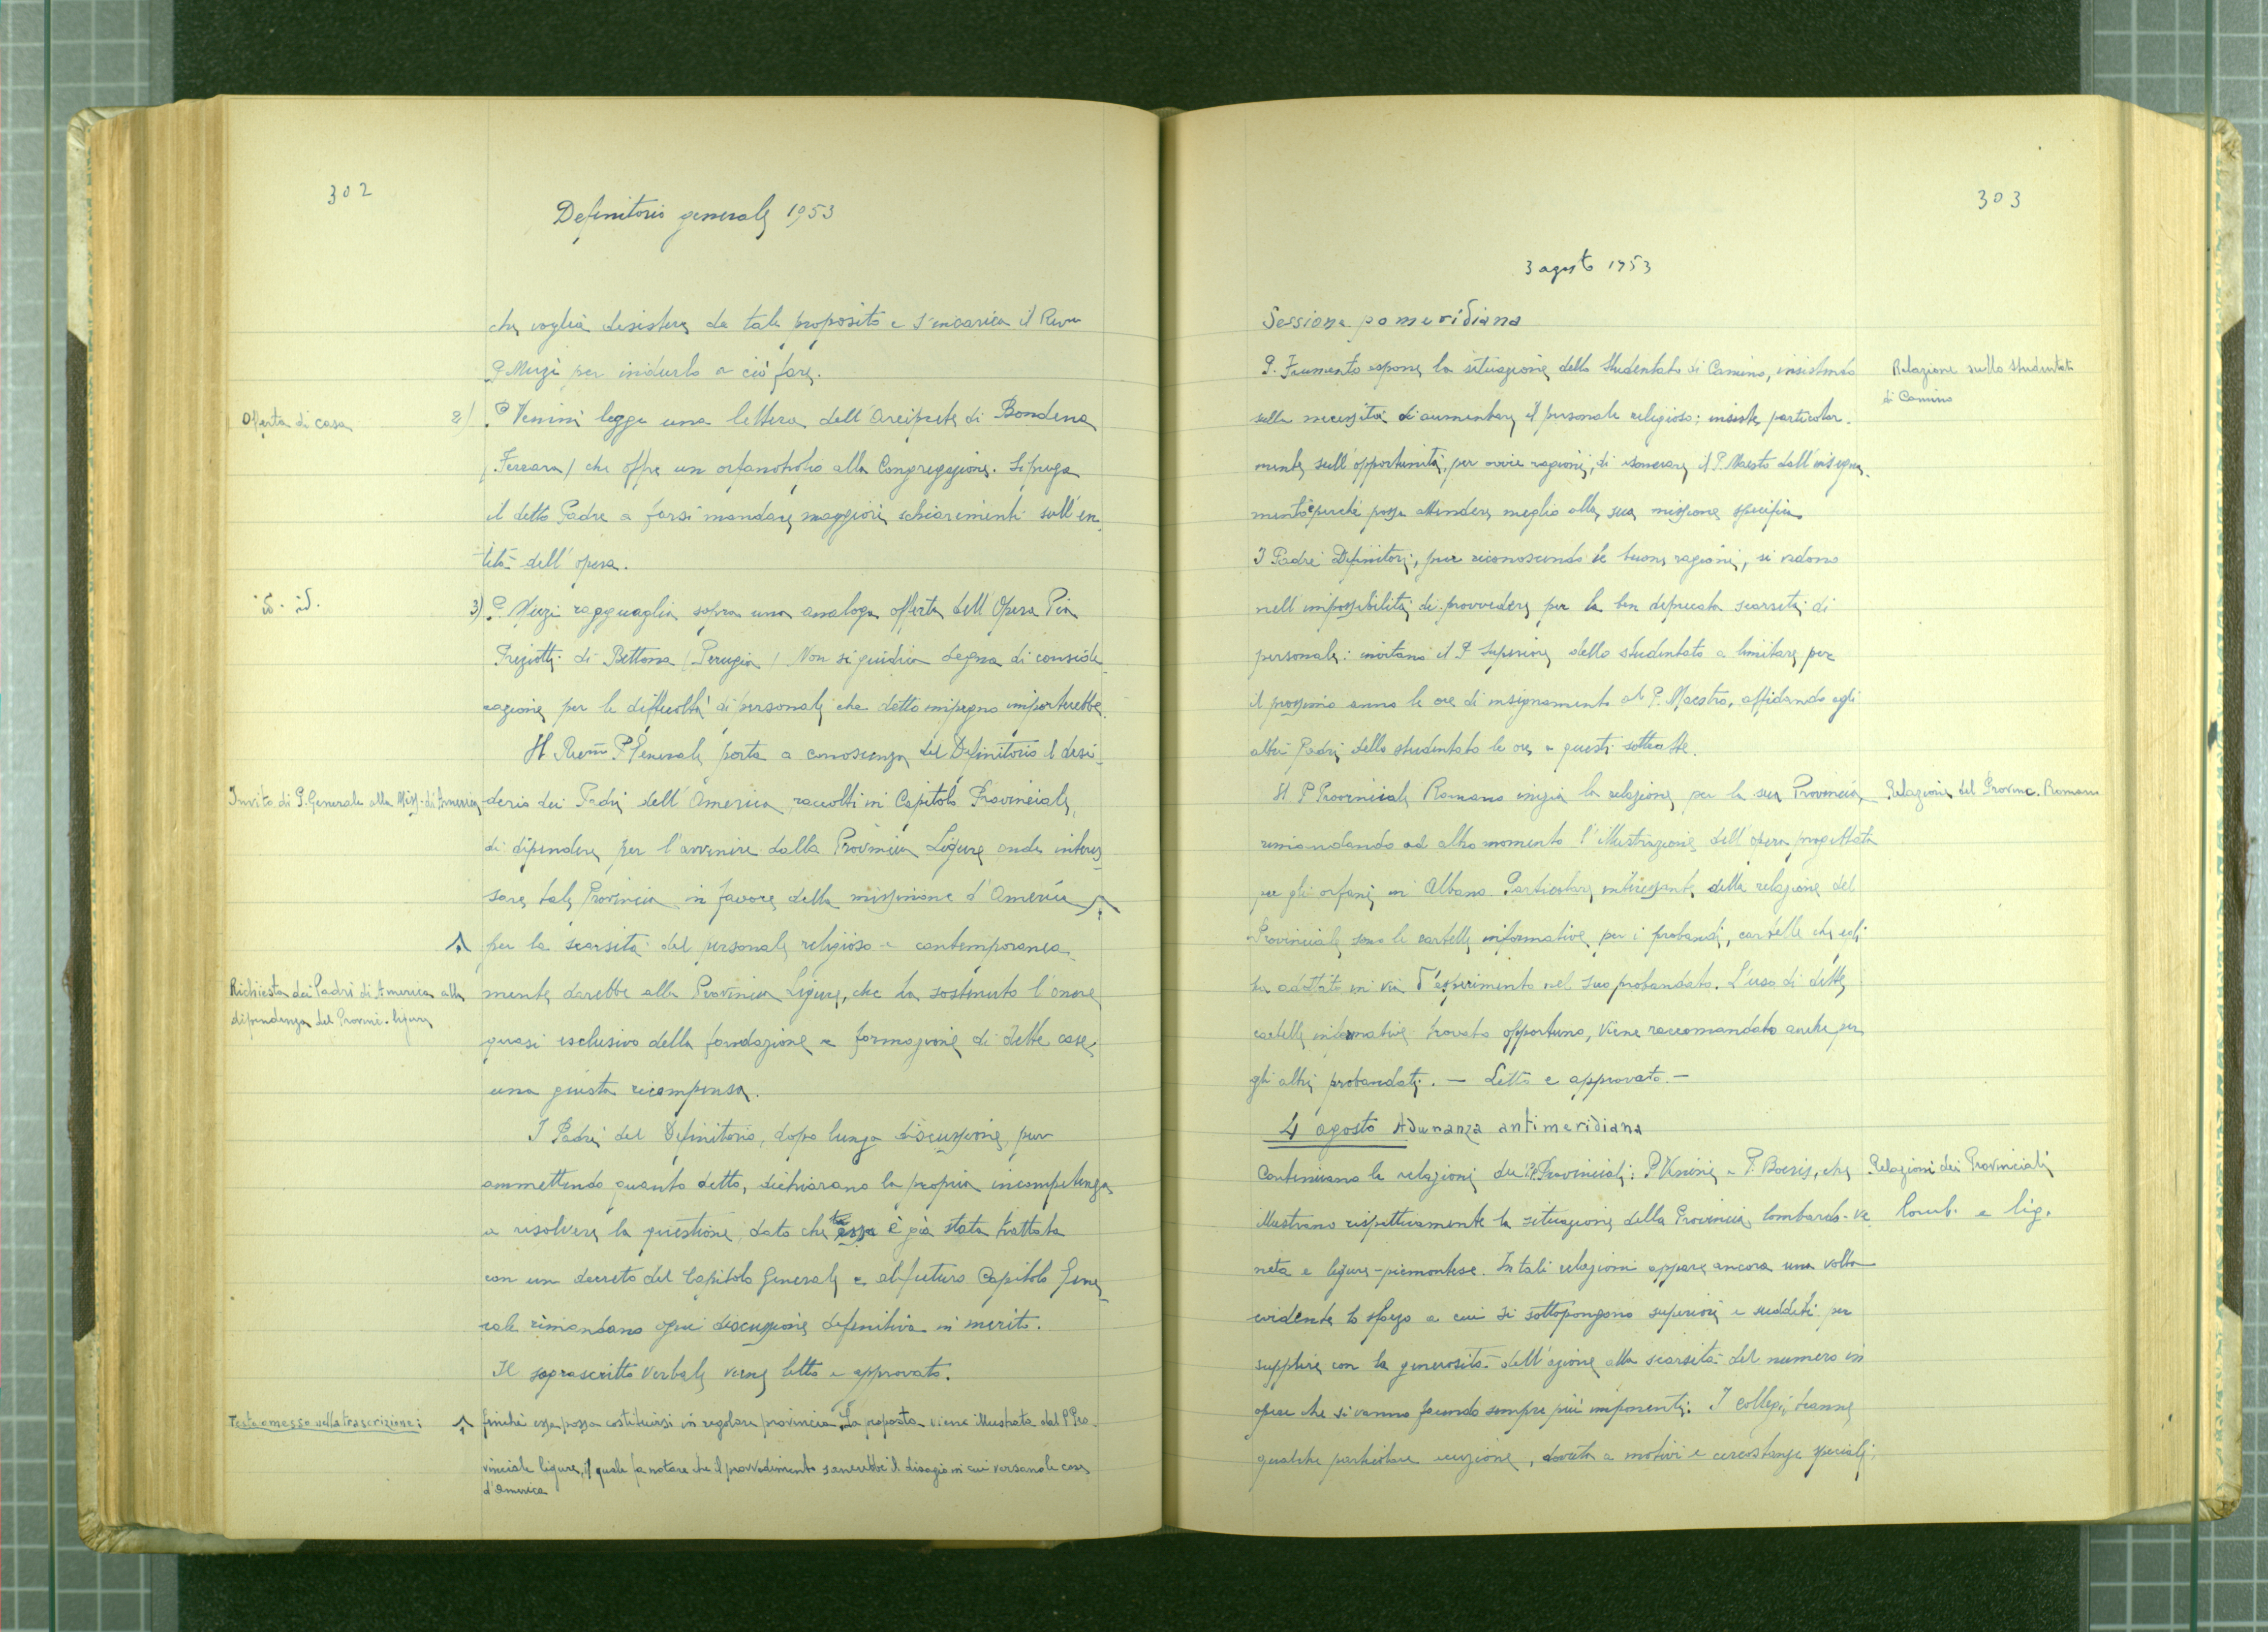 302
Definitorio generale 1953
che voglia desistere da tale proposito e s'incarica il Rev.mo
P. Muzi per indurlo a ciò fare.
Offerta di casa
2) P. Venini legge una lettera dell'Arciprete di Bondeno
(Ferrara) che offre un orfanotrofio alla Congregazione. Si prega
il detto Padre a farsi mandare maggiori schiarimenti sull'en-
tità dell'opera.
id. id.
3) P. Muzi ragguaglia sopra una analoga offerta dell'Opera Pia
di Bettona (Perugia) Non si giudica degna di conside-
razione per le difficoltà di personale che detto impegno importerebbe.
Il Rev.m P. Generale porta a conoscenza del Definitorio il desi-
Invito di P. Generale alla Miss. di America
derio dei Padri dell'America, raccolti in Capitolo Provinciale,
di dipendere per l'avvenire dalla Provincia Ligure onde interes-
sare tale Provincia in favore della missione d'America
per la scarsità del personale religioso e contemporanea-
Richiesta dei Padri di America alla
dipendenza del Provinc. ligure
mente darebbe alla Provincia Ligure, che ha sostenuto l'onere
quasi esclusivo della fondazione e formazione di dette case,
una giusta ricompensa.
I Padri del Definitorio, dopo lunga discussione, pur
ammettendo quanto detto, dichiarano la propria incompetenza
a risolvere la questione, dato che essa è già stata trattata
con un decreto del Capitolo Generale e al futuro Capitolo Gene-
rale rimandano ogni discussione definitiva in merito.
Il soprascritto verbale viene letto e approvato.
Testo omesso nella trascrizione:
finchè essa possa costituirsi in regolare provincia. La proposta viene illustrata dal P. Pro-
vinciale ligure, il quale fa notare che il provvedimento sanerebbe il disagio in cui versano le case
d'America
303
3 agosto 1953
Sessione pomeridiana
P. Frumento espone la situazione dello Studentato di Camino, insistendo
Relazione sullo studentato
di Camino
sulla necessità di aumentare il personale religioso; insiste particolar-
mente sull'opportunità, per ovvie ragioni, di esonerare il P. Maestro dall'insegna-
mento perchè possa attendere meglio alla sua missione specifica.
I Padri Definitori, pur riconoscendo le buone ragioni, si vedono
nell'impossibilità di provvedere per la ben deprecata scarsità di
personale: invitano il P. Superiore dello studentato a limitare per
il prossimo anno le ore di insegnamento al P. Maestro, affidando agli
altri Padri dello studentato le ore a questi sottratte.
Il P. Provinciale Romano inizia la relazione per la sua Provincia,
Relazione del Provinc. Romano
rimandando ad altro momento l'illustrazione dell'opera progettata
per gli orfani in Albano. Particolare interessante della relazione del
Provinciale sono le cartelle informative per i probandi, cartelle che egli
ha adottato in via d'esperimento nel suo probandato. L'uso di dette
cartelle informative trovato opportuno, viene raccomandato anche per
gli altri probandati. — Letto e approvato. —
4 agosto Adunanza antimeridiana
Continuano le relazioni dei PP. Provinciali: P. Venini e P. Boeris, che
Relazioni dei Provinciali
illustrano rispettivamente la situazione della Provincia lombardo-ve-
Lomb. e lig.
neta e ligure-piemontese. In tali relazioni appare ancora una volta
evidente lo sforzo a cui si sottopongono superiori e sudditi per
supplire con la generosità dell'azione alla scarsità del numero in
opere che si vanno facendo sempre più imponenti. I collegi, tranne
qualche particolare eccezione, dovuta a motivi e circostanze speciali,